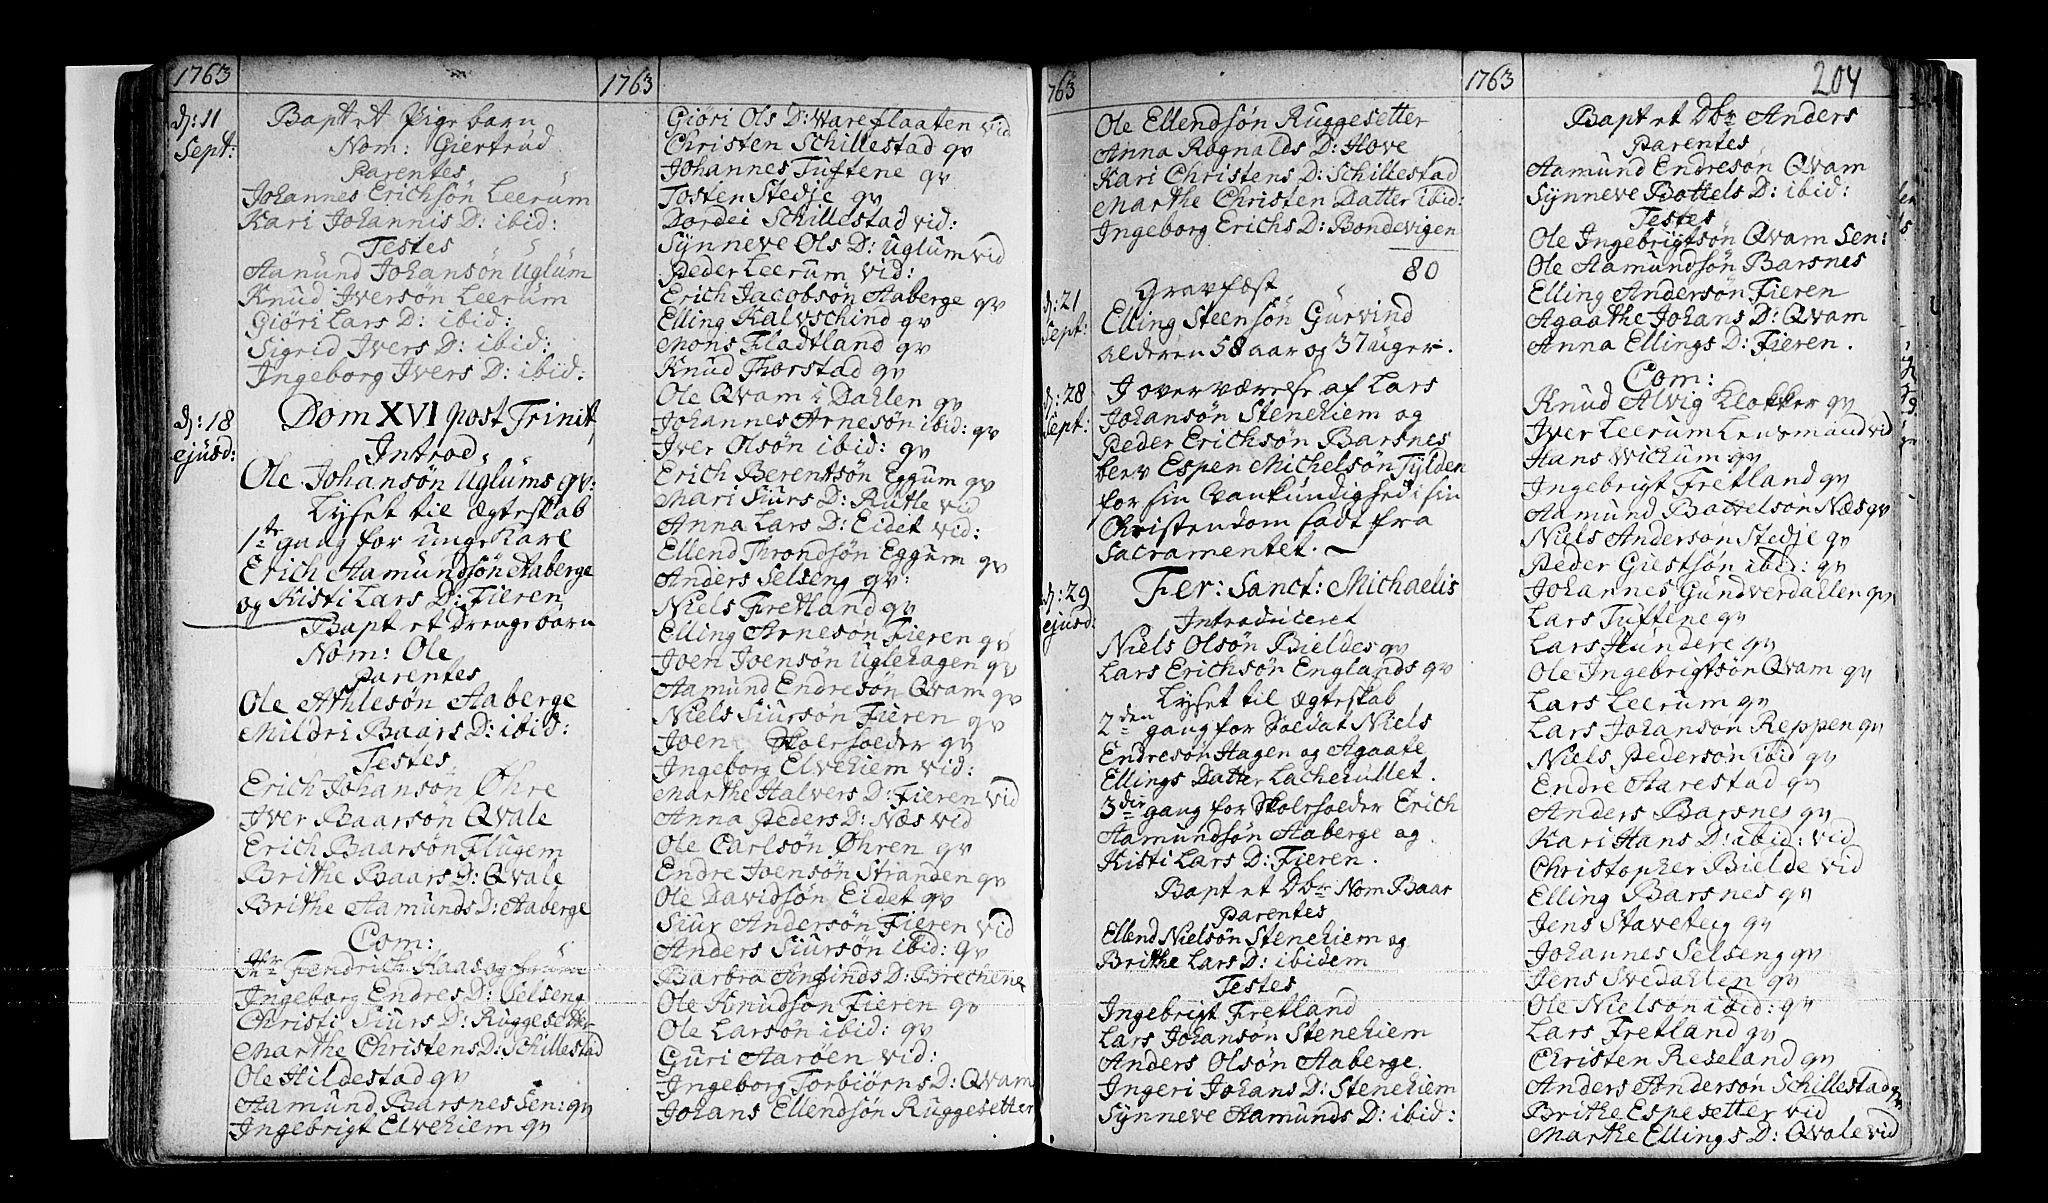 1763
d: 11
Sept:
Bapt et Pige barn
Nom: Giertrud
Parentes
Johannes Erichsön Leerum
Kari Johannis D: ibid:
Testes
Aamund Johansön Uglum
Knud Iversön Leerum
Giöri Lars D: ibid:
Sigrid Ivers D: ibid:
Ingeborg Ivers D: ibid:
d: 18
ejusd:
Dom XVI post Trinit,
Introd:
Ole Johansön Uglums qv:
Lyset til Ægteskab
1ste gang for unge Karl
Erich Aamundsön Aaberge
og Kisti Lars D: Fieren
Bapt et Drengebarn
Nom: Ole
Parentes
Ole Athlesön Aaberge
Mildri Baars D: ibid:
Testes
Erich Johansön Öhre
Iver Baarsön Qvale
Erich Baarsön Flugem
Brithe Baars D: Qvale
Brithe Aamunds D: Aaberge
Com:
Hr Fendrich Haas og fruen
Ingeborg Endres D: Selseng
Christi Siurs D: Ruggesetter
Marthe Christens D: Schillestad
Ole Hildestad qv
Aamund Barsnes Sen: qv
Ingebrigt Elvehiem qv
1763
Giöri Ols D: Vareflaaten vid
Christen Schillestad qv
Johannes Tuftene qv
Tosten Stedje qv
Dordei Schillestad vid:
Synneve Ols D: Uglum vid
Peder Leerum vid:
Erich Jacobsön Aaberge qv
Elling Kalvschind qv
Mons Fladtland qv
Knud Thorstad qv
Ole Qvam i Dahlen qv
Johannes Arnesön ibid: qv
Iver Olsön ibid: qv
Erich Berentsön Eggum qv
Mari Siurs D: Ruthe vid
Anna Lars D: Eidet vid:
Ellend Throndsön Eggum qv
Anders Selseng qv:
Niels Fretland qv
Elling Arnesön Fieren qv
Joen Joensön Uglehagen qv
Aamund Endresön Qvam qv
Niels Siursön Fieren qv
Joen Skolrholder qv
Ingeborg Elvehiem vid:
Marthe Halvers D: Fieren vid
Anna Peders D: Næs vid
Ole Carlsön Öhren qv
Endre Joensön Stranden qv
Ole Davidsön Eidet qv
Siur Andersön Fieren vid
Anders Siursön ibid: qv
Barbra Anfinds D: Brechene
Ole Knudsön Fieren qv
Ole Larsön ibid: qv
Guri Aaröen vid:
Ingeborg Torbiörns D: Qvam
Johans Ellendsön Ruggesetter
763
Ole Ellendsön Ruggesetter
Anna Rognalds D: Hove
Kari Christens D: Schillestad
Marthe Christen Datter ibid:
Ingeborg Erichs D: Bondevigen
80
d: 21
Sept:
Gravfæst
Elling Steensön Gurvind
alderen 58 aar og 37 uger.
d: 28
Sept:
I overværrelse af Lars
Johansön Stenehiem og
Peder Erichsön Barsnes
blev Espen Michelsön Tylden
for sin Vankundighed i sin
Christendom sadt fra
Sacramentet.
d: 29
ejusd:
Fer: Sanct: Michaelis
Introduceret
Niels Olsön Bieldes qv
Lars Erichsön Englands qv
Lyset til Ægteskab
2den gang for Soldat Niels
Endresön Hagen og Agaate
Ellings Datter Lacherullet.
3die gang for Skoleholder Erich
Aamundsön Aaberge og
Kisti Lars D: Fieren.
Bapt et Dbr Nom Baar
Parentes
Ellend Nielsön Stenehiem og
Brithe Lars D: ibidem
Testes
Ingebrigt Fretland
Lars Johansön Stenehiem
Anders Olsön Aaberge
Ingeri Johans D: Stenehiem
Synneve Aamunds D: ibid:
1763
204
Bapt et Dbr Anders
Parentes
Aamund Endresön Qvam
Synneve Bottels D: ibid:
Testes
Ole Ingebrigtsön Qvam Sen:
Ole Aamundsön Barsnes
Elling Andersön Fieren
Agaathe Johans D: Qvam
Anna Ellings D: Fieren.
Com:
Knud Alvig Klokker qv
Iver Leerum Lensmand vid
Hans Vichum qv
Ingebrigt Fretland qv
Aamund Battelsön Næs qv
Niels Anderson Stedje qv
Peder Giestsön ibid: qv
Johannes Gundverdahlen qv
Lars Tuftene qv
Lars Hundere qv
Ole Ingebrigtsön Qvam qv
Lars Leerum qv
Lars Johansön Reppen qv
Niels Pedersön ibid qv
Endre Aarestad qv
Anders Barsnes qv
Kari Hans D: ibid: vid
Christopher Bielde vid
Elling Barsnes qv
Jens Staveteig qv
Johannes Selseng qv
Jens Svedahlen qv
Ole Nielsön ibid: qv
Lars Fretland qv
Christen Reseland qv
Anders Andersön Schillestad qv
Brithe Espesetter vid
Marthe Ellings D: Qvale vid